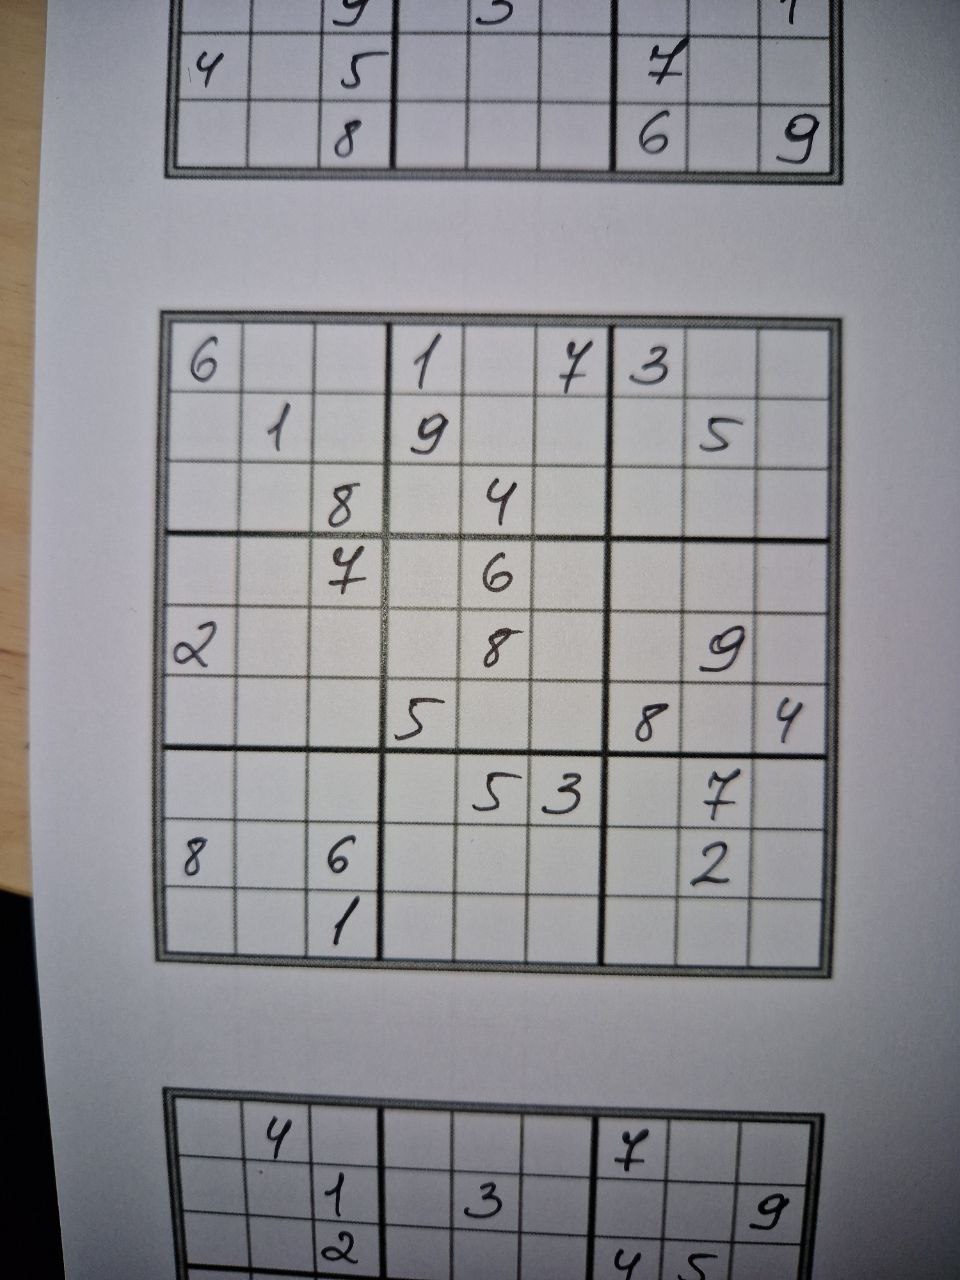 9 3 1
4 5 7
8 6 9
6 1 7 3
1 9 5
8 4
7 6
2 8 9
5 8 4
5 3 7
8 6 2
1
4 7
1 3 9
2 4 5